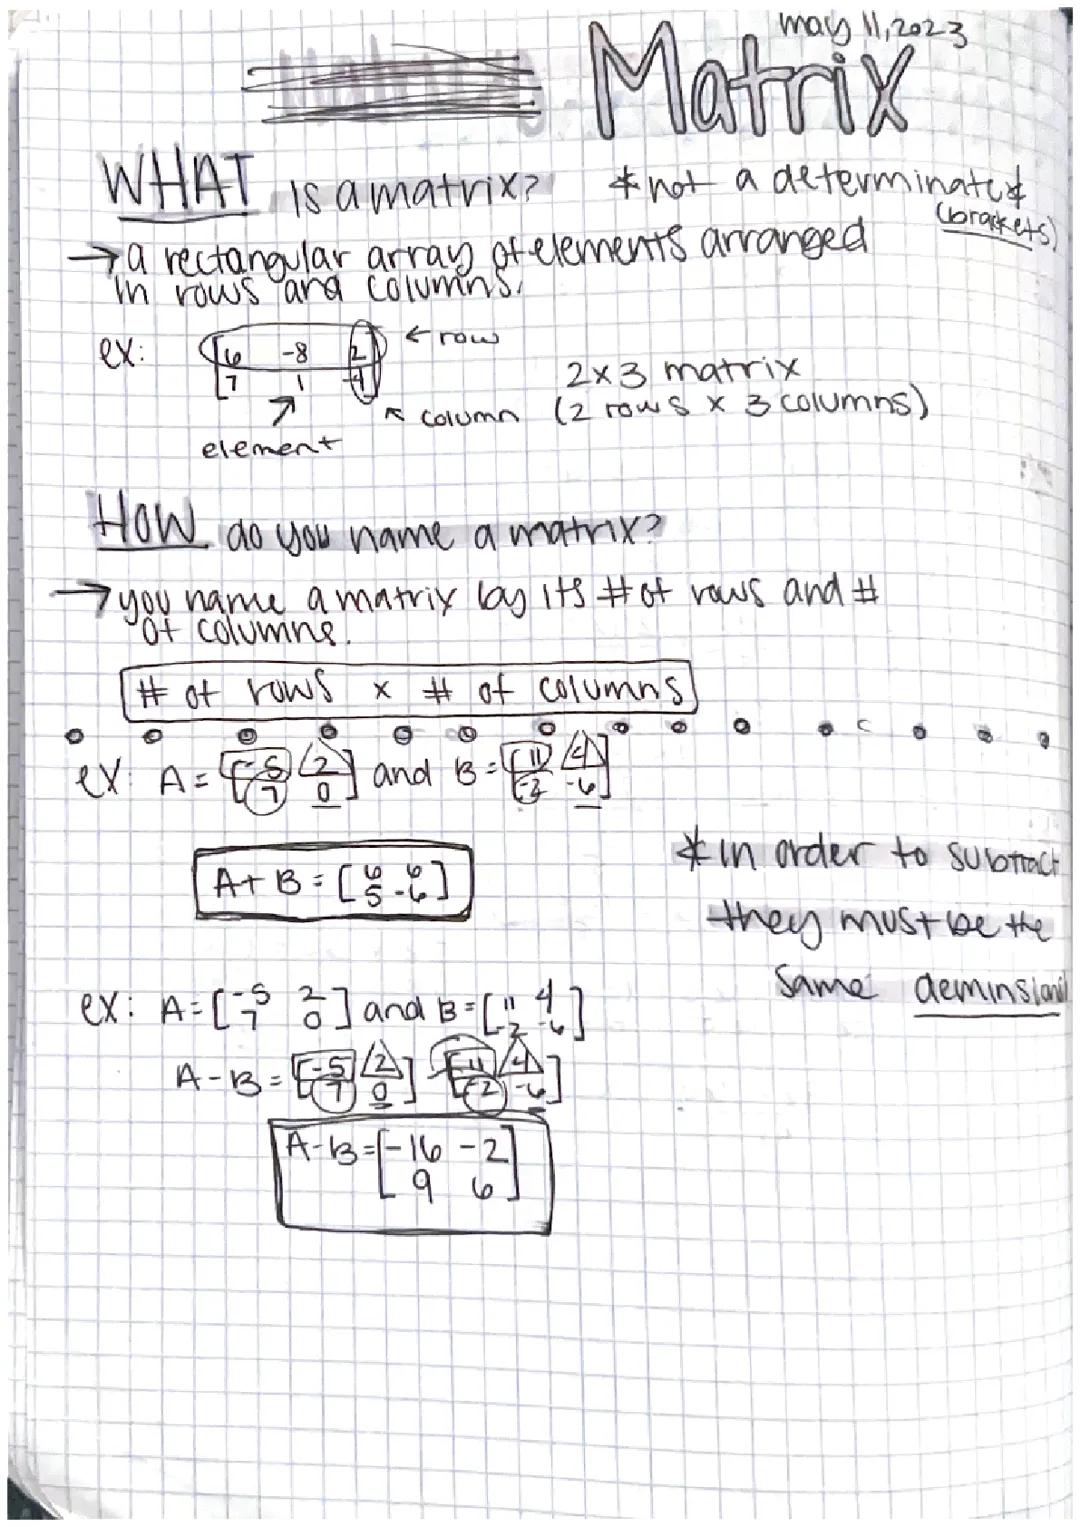 may 11, 2023
Matrix
WHAT is a matrix? * not a determinate *
(brackets)
→ a rectangular array of elements arranged
in rows and columns.
ex: [6 -8 2 ← row
7 1 -4]
↗ ↖ column
element
2x3 matrix
(2 rows x 3 columns)
HOW do you name a matrix?
→ you name a matrix by its # of rows and #
of columns.
# of rows x # of columns
ex: A = [-5 2 and B = [11 4
7 0] -2 -6]
A + B = [6 6
5 -6]
* in order to subtract
they must be the
same deminsions
ex: A = [-5 2 and B = [11 4
7 0] -2 -6]
A - B = [-5 2 [11 4
7 0] -2 -6]
A - B = [-16 -2
9 6]